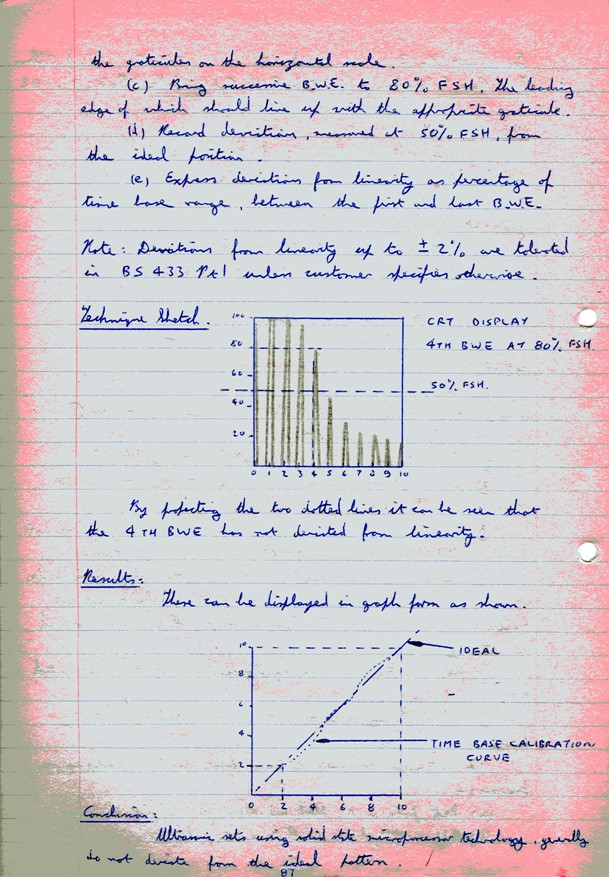 the graticules on the horizontal scale.
(c) Bring successive B.W.E. to 80% FSH. The leading
edge of which should line up with the appropriate graticule.
(d) Record deviations, measured at 50% FSH, from
the ideal position.
(e) Express deviations from linearity as percentage of
time base range, between the first and last B.W.E.
Note: Deviations from linearity up to ± 2% are tolerated
in BS 433 Pt 1 unless customer specifies otherwise.
Technique Sketch.
100
80
60
40
20
0 1 2 3 4 5 6 7 8 9 10
CRT DISPLAY
4TH BWE AT 80% FSH
50% FSH.
By projecting the two dotted lines it can be seen that
the 4TH BWE has not deviated from linearity.
Results:
These can be displayed in graph form as shown.
10
8
6
4
2
0 2 4 6 8 10
IDEAL
TIME BASE CALIBRATION
CURVE
Conclusion:
Ultrasonic sets using solid state microprocessor technology, generally
do not deviate from the ideal pattern.
87